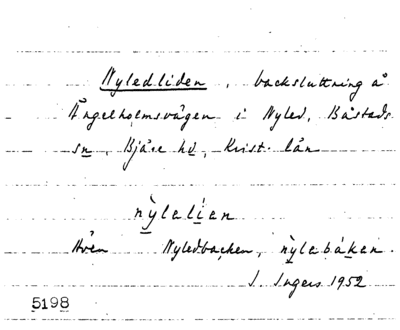 Nyledliden, backsluttning å
Ängelholmsvägen i Nyled, Båstads
sn, Bjäre hd, Krist. län
nỳlelìen
Även Nyledbacken, nỳlebáken.
I. Ingers 1952
5198